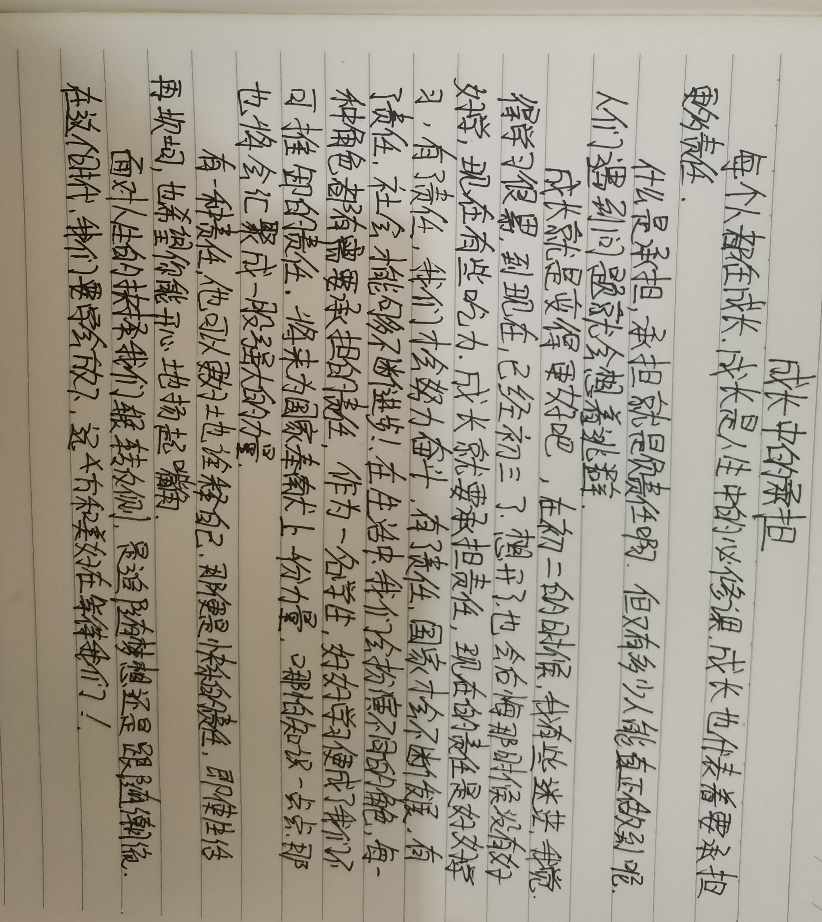 成长中的承担
每个人都在成长.成长是人生中的必修课.成长也代表着要承担
更多责任.
什么是承担,承担就是负责任啊.但又有多少人能真正做到呢.
人们遇到问题就会想着逃避.
成长就是变得更好吧,在初二的时候,我有些迷茫,我觉
得学习很累到现在,已经初三了.想开了也会后悔那时候没有好
好学,现在有些吃力.成长就要承担责任,现在的责任是好好学
习,有了责任,我们才会努力奋斗,有了责任,国家才会不断发展,有
了责任,社会才能够不断进步!在生活中.我们会扮演不同的角色,每一
种角色都有需要承担的责任,作为一名学生,好好学习便成了我们不
可推卸的责任.将来为国家奉献上一份力量,哪怕知识一点点.那
也将会汇聚成一股强大的力量.
有一种责任,他可以更好地诠释自己,那便是快乐的责任,即使生活
再坎坷,也希望你能开心地扬起嘴角.
面对人生的抉择我们辗转反侧,是追随梦想还是跟随潮流.
在这个时代,我们要学会放下,远方和美好在等待我们!